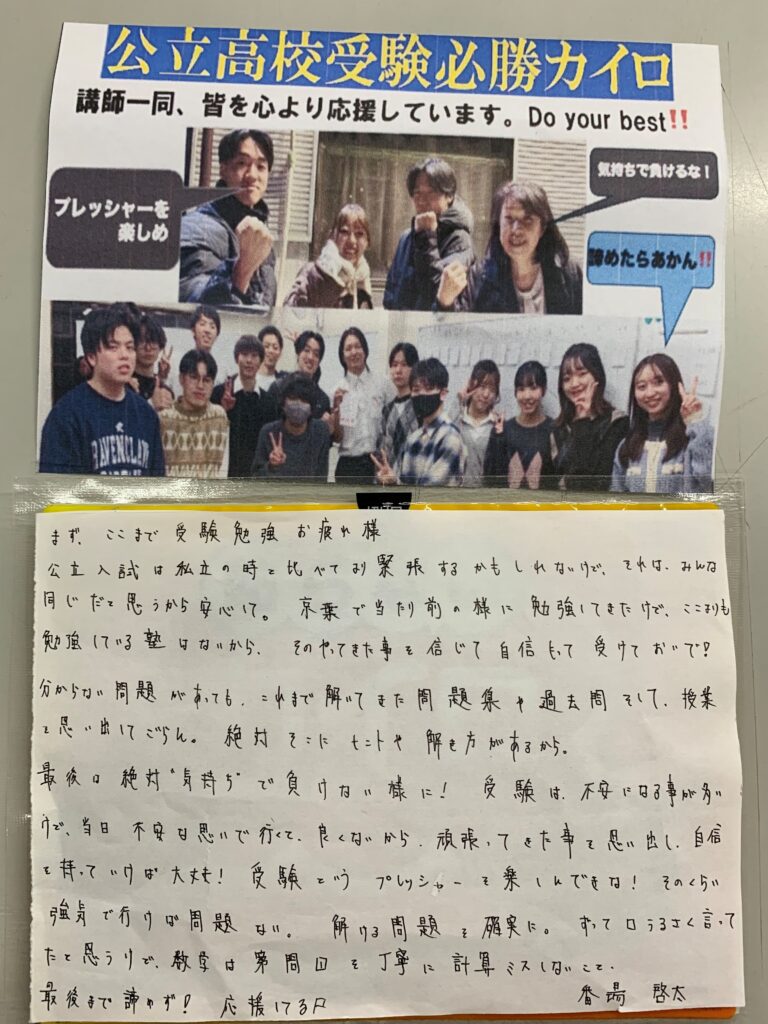 公立高校受験必勝カイロ
講師一同、皆を心より応援しています。Do your best!!
プレッシャーを
楽しめ
気持ちで負けるな！
諦めたらあかん!!
RAVENCLAW
まず、ここまで受験勉強お疲れ様
公立入試は私立の時と比べてより緊張するかもしれないけど、それは、みんな
同じだと思うから安心して。京葉で当たり前の様に勉強してきたけど、ここよりも
勉強している塾はないから、そのやってきた事を信じて自信もって受けておいで!
分からない問題があっても、これまで解いてきた問題集や過去問そして、授業
を思い出してごらん。絶対そこにヒントや解き方があるから。
最後は絶対"気持ち"で負けない様に! 受験は、不安になる事が多い
けど、当日不安な思いで行くて、良くないから、頑張ってきた事を思い出し、自信
を持っていけば大丈夫! 受験というプレッシャーを楽しんできな! そのくらい
強気で行けば問題ない。解ける問題を確実に。ずっと口うるさく言って
たと思うけど、数学は第問回を丁寧に計算ミスしないこと、
最後まで諦めず! 応援してるよ 番場 啓太